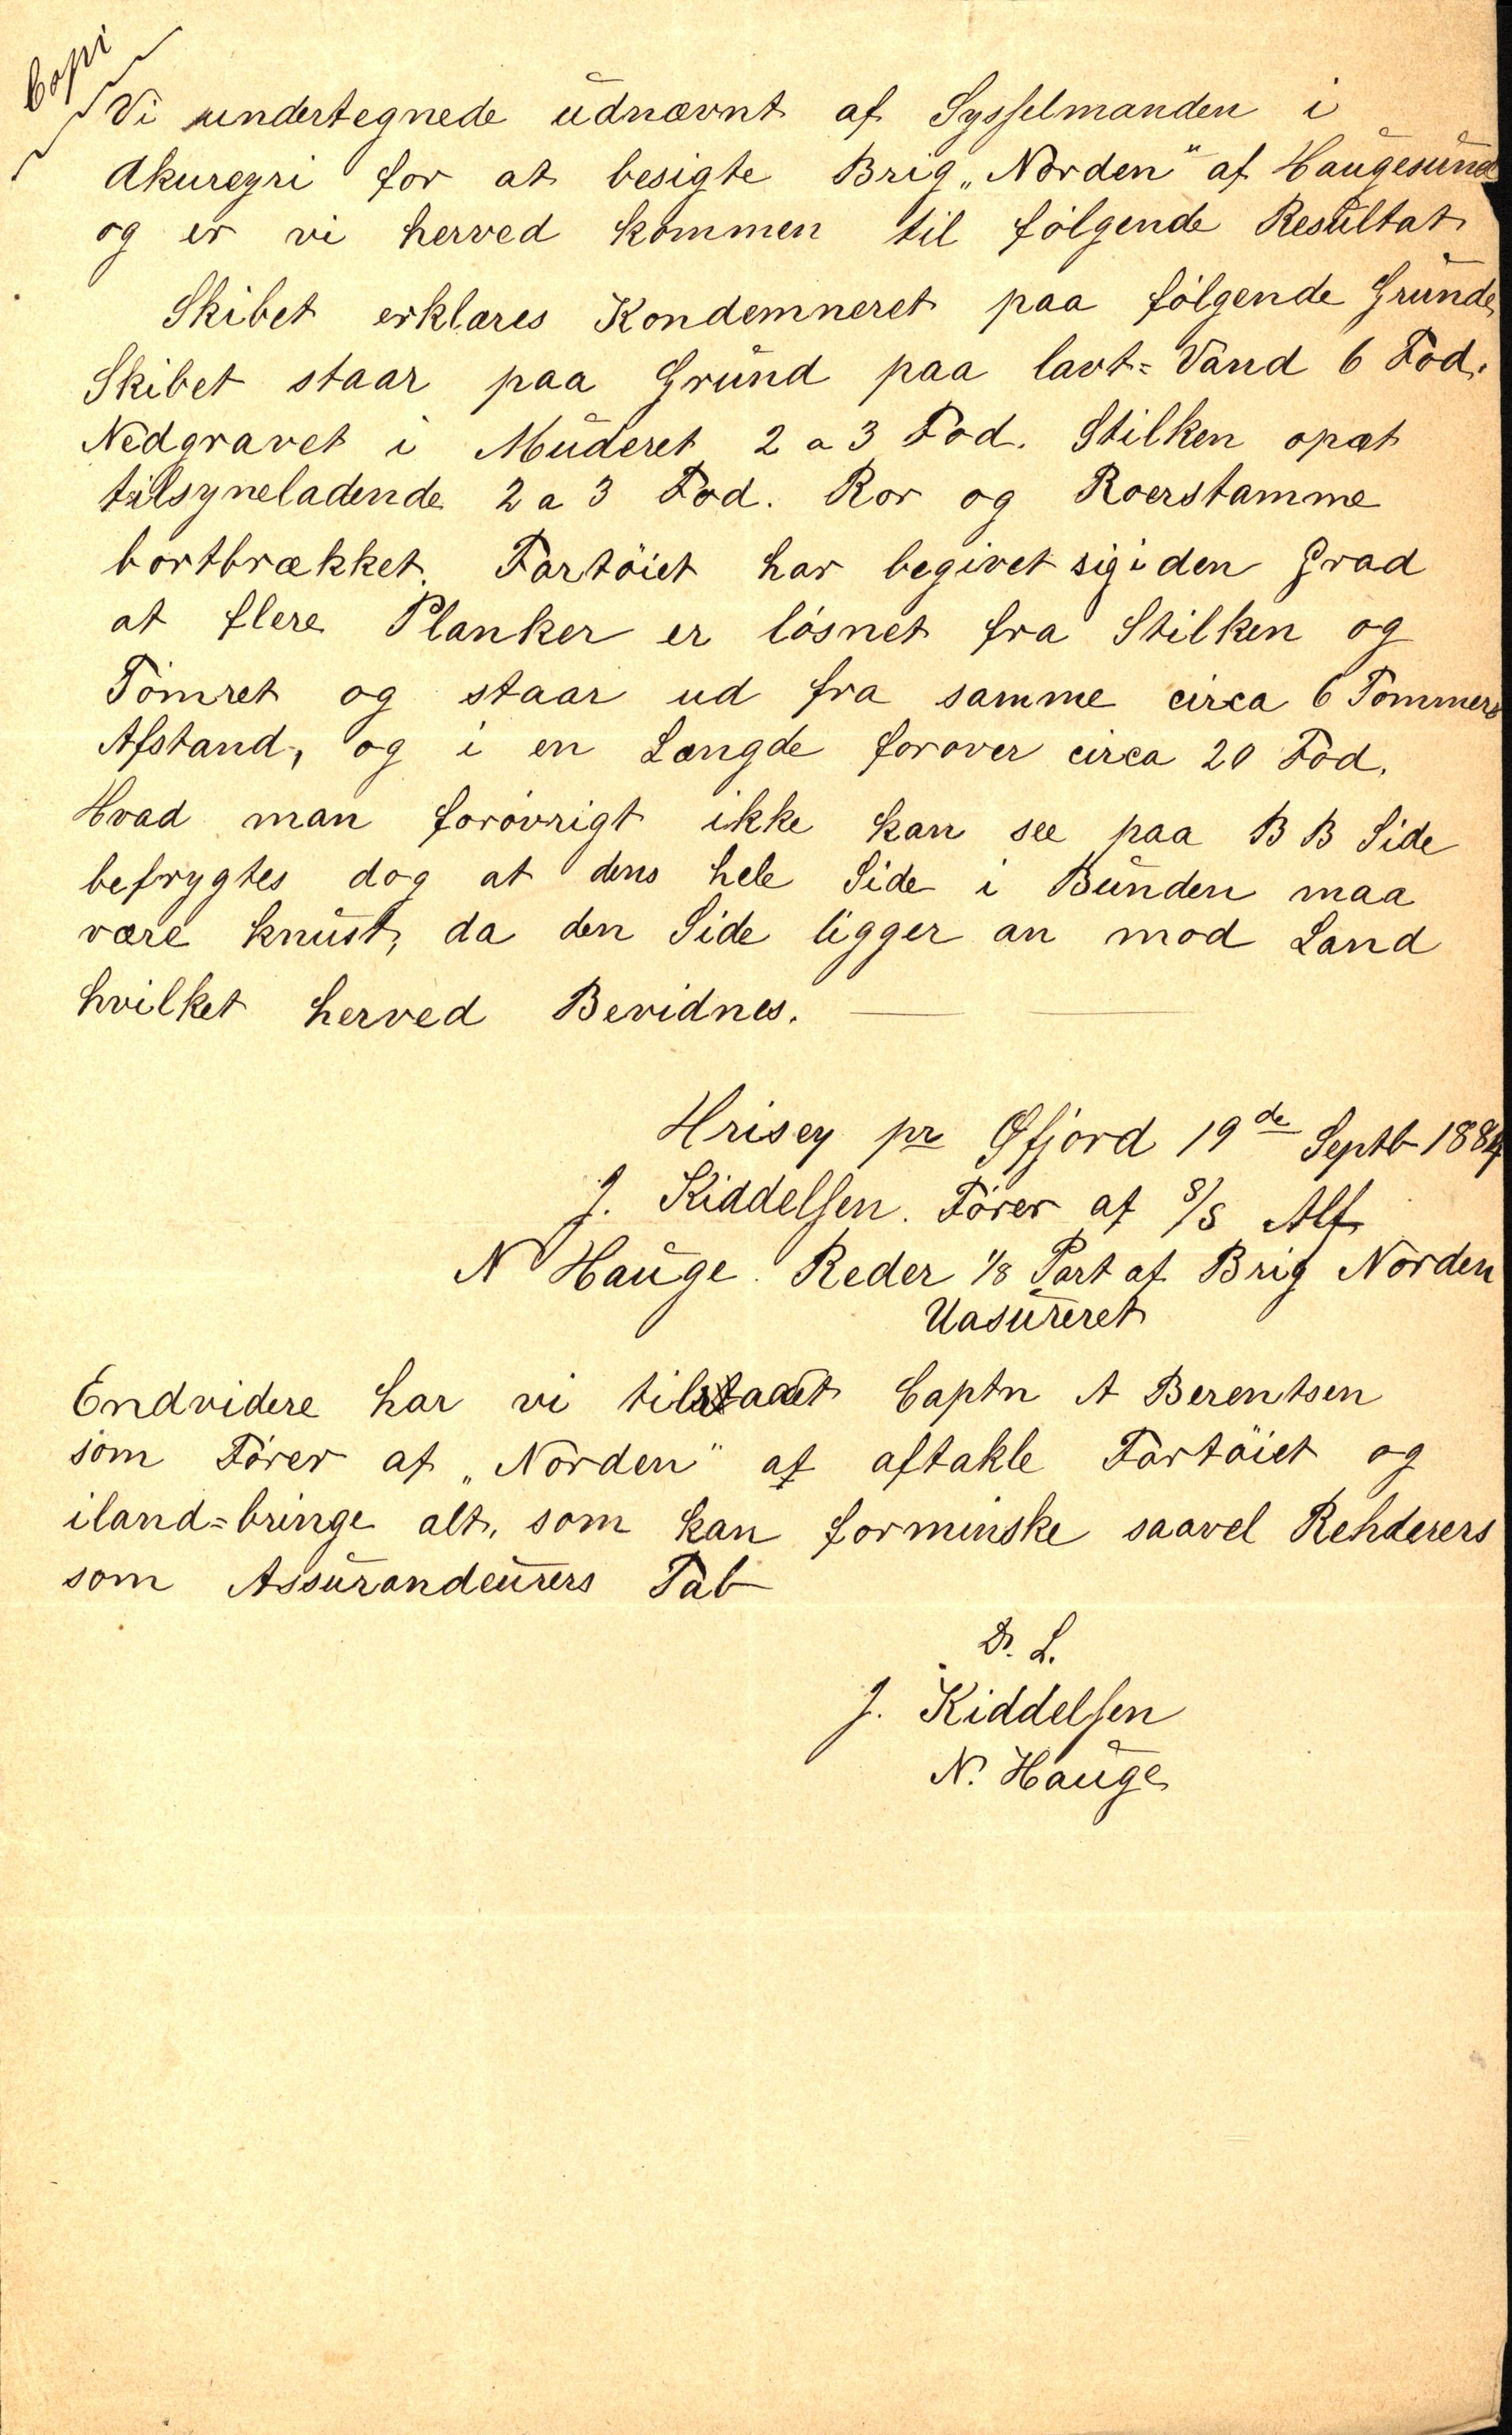 Copi
Vi undertegnede udnævnt af Sysselmanden i
Akureyri for at besigte Brig „Norden" af Haugesund
og er vi herved kommen til følgende Resultat
Skibet erklæres Kondemneret paa følgende Grunde,
Skibet staar paa Grund paa lavt=Vand 6 Fod.
Nedgravet i Muderet 2 a 3 Fod. Stilken opæt
tilsyneladende 2 a 3 Fod. Ror og Roerstamme
bortbrækket. Fartøiet har begivet sig i den Grad
at flere Planker er løsnet fra Stilken og
Tømret og staar ud fra samme circa 6 Tommers
Afstand, og i en Længde forover circa 20 Fod.
Hvad man forøvrigt ikke kan see paa B B Side
befrygtes dog at dens hele Side i Bunden maa
være knust, da den Side ligger an mod Land
hvilket herved Bevidnes.
Hrisey pr Øfjord 19de Septb 1884
J. Kiddelsen. Fører af S/S Alf
N Hauge. Reder 1/8 Part af Brig Norden
Uasureret
Endvidere har vi tilraadet Captn A Berentsen
som Fører af „Norden" at aftakle Fartøiet og
iland=bringe alt, som kan forminske saavel Rehderers
som Assurandeurers Tab
D. L.
J. Kiddelsen
N. Hauge